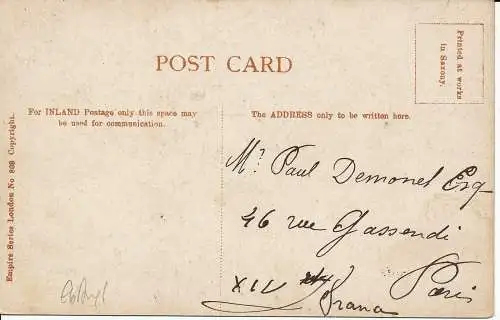 POST CARD
Printed at works
in Saxony.
For INLAND Postage only this space may
be used for communication.
The ADDRESS only to be written here.
Empire Series London No 808 Copyright.
Mr Paul Demonet Esq
46 rue Gassendi
XIV Paris
France